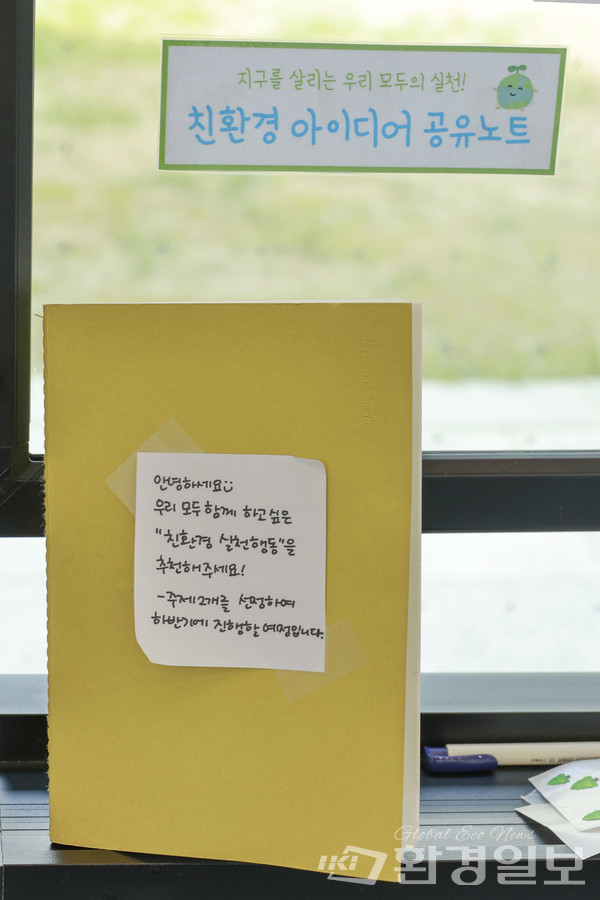 지구를 살리는 우리 모두의 실천!
친환경 아이디어 공유노트
안녕하세요
우리 모두 함께 하고싶은
"친환경 실천행동"을
추천해주세요!
-주제 2개를 선정하여
하반기에 진행할 예정입니다.
Global Eco News
HKI 환경일보